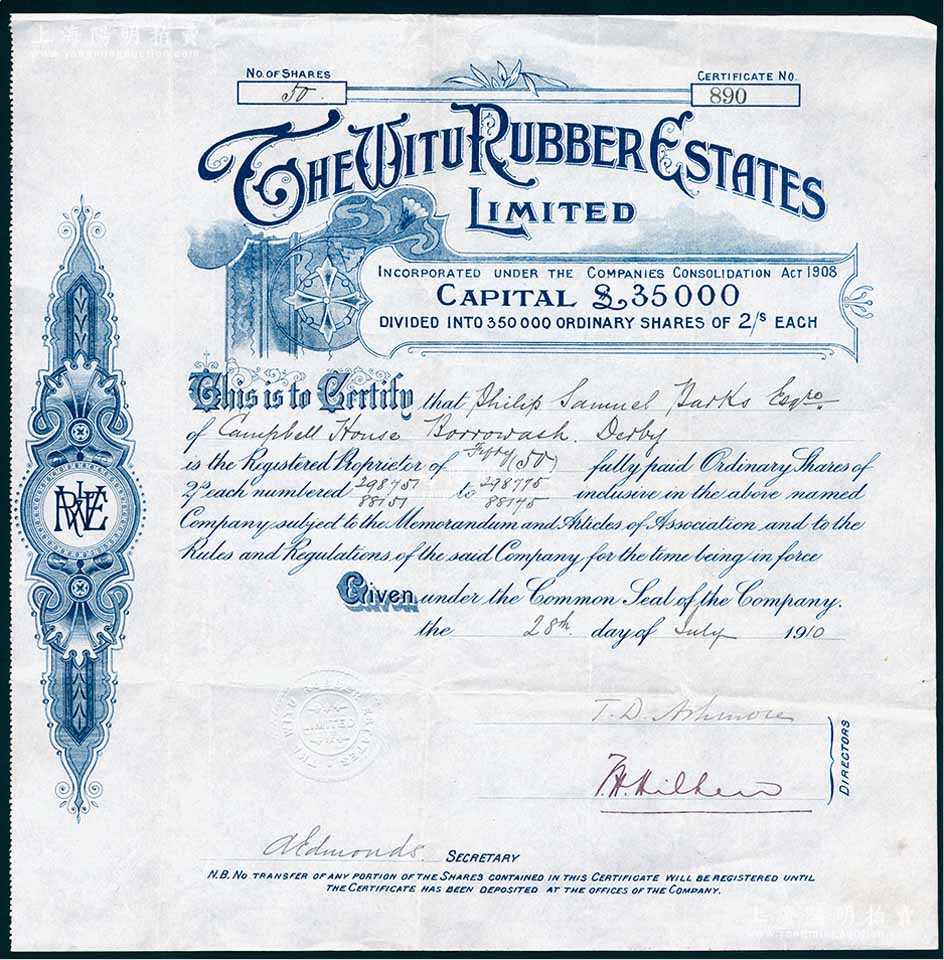 上海陽明拍賣
www.yangmingauction.com
No. OF SHARES
50.
CERTIFICATE No.
890
THE WITU RUBBER ESTATES
LIMITED
INCORPORATED UNDER THE COMPANIES CONSOLIDATION ACT 1908
CAPITAL £35000
DIVIDED INTO 350000 ORDINARY SHARES OF 2/s EACH
This is to Certify that Philip Samuel Parks Esqre
of Campbell House Borrowash. Derby
is the Registered Proprietor of Fifty (50) fully paid Ordinary Shares of
2/s each numbered 298751 to 298775 inclusive in the above named
88151 88175
Company subject to the Memorandum and Articles of Association and to the
Rules and Regulations of the said Company for the time being in force
Given under the Common Seal of the Company.
the 28th day of July 1910
LIMITED
T. D. Ashmore
DIRECTORS
Edmonds. SECRETARY
N.B. NO TRANSFER OF ANY PORTION OF THE SHARES CONTAINED IN THIS CERTIFICATE WILL BE REGISTERED UNTIL
THE CERTIFICATE HAS BEEN DEPOSITED AT THE OFFICES OF THE COMPANY.
上海陽明拍賣
www.yangmingauction.com